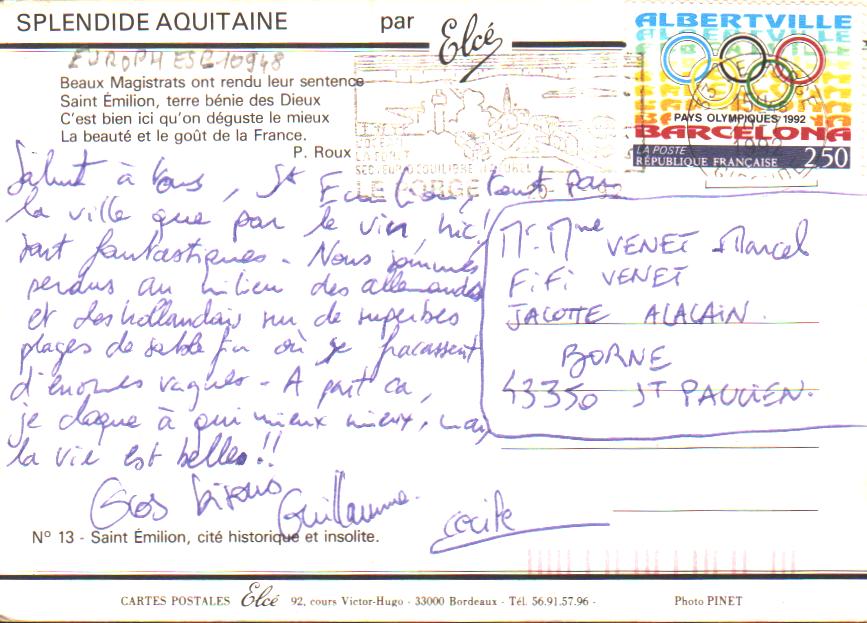 SPLENDIDE AQUITAINE par Elcé
EUROPHESC10948
Beaux Magistrats ont rendu leur sentence
Saint Émilion, terre bénie des Dieux
C'est bien ici qu'on déguste le mieux
La beauté et le goût de la France.
P. Roux
ALBERTVILLE
PAYS OLYMPIQUES 1992
BARCELONA
LA POSTE
RÉPUBLIQUE FRANÇAISE 2,50
1992
LE PORGE
Salut à tous, St Emilion, tant par
la ville que par le vin, hic!
sont fantastiques. Nous sommes
perdus au milieu des allemands
et des hollandais sur de superbes
plages de sable fin où se fracassent
d'énormes vagues - A part ca,
je claque à qui mieux mieux, mais
la vie est belles!!
Gros bisous Guillaume.
Cécile
Mr. Mme VENET Marcel
FIFI VENET
JACOTTE ALALAIN.
BORNE
43350 ST PAULIEN.
N° 13 - Saint Émilion, cité historique et insolite.
CARTES POSTALES Elcé 92, cours Victor-Hugo - 33000 Bordeaux - Tél. 56.91.57.96 - Photo PINET